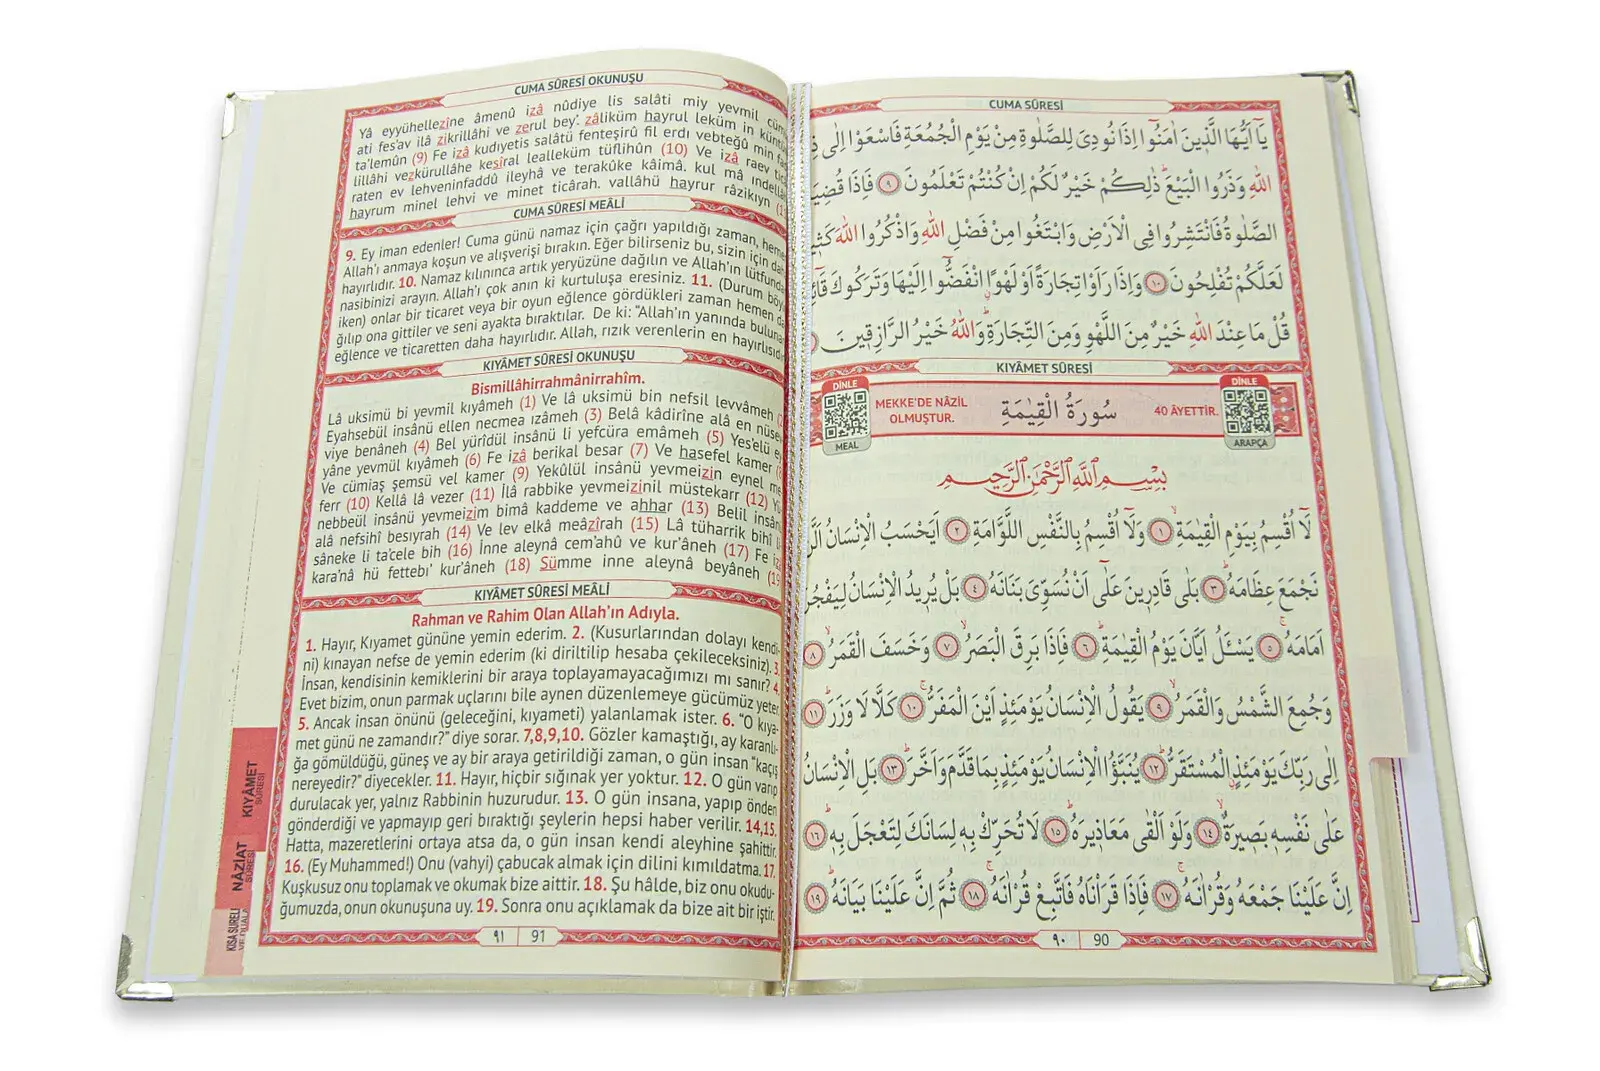 CUMA SÛRESİ OKUNUŞU
Yâ eyyühellezîne âmenû izâ nûdiye lis salâti miy yevmil
ati fes'av ilâ zikrillâhi ve zerul bey'. zâliküm hayrul leküm in küntüm
ta'lemûn (9) Fe izâ kudıyetis salâtü fenteşirû fil erdı vebteğû min
lillâhi vezkürullahe kesîral lealleküm tüflihûn (10) Ve izâ raev
raten ev lehveninfaddû ileyhâ ve terakûke kâimâ. kul mâ indellâ
hayrum minel lehvi ve minet ticârah. vallâhü hayrur râzikıyn
CUMA SÛRESİ MEÂLİ
9. Ey iman edenler! Cuma günü namaz için çağrı yapıldığı zaman, hemen
Allah'ı anmaya koşun ve alışverişi bırakın. Eğer bilirseniz bu, sizin için daha
hayırlıdır. 10. Namaz kılınınca artık yeryüzüne dağılın ve Allah'ın lütfundan
nasibinizi arayın. Allah'ı çok anın ki kurtuluşa eresiniz. 11. (Durum böy
iken) onlar bir ticaret veya bir oyun eğlence gördükleri zaman hemen da
ğılıp ona gittiler ve seni ayakta bıraktılar. De ki: "Allah'ın yanında bulunan
eğlence ve ticaretten daha hayırlıdır. Allah, rızık verenlerin en hayırlısıdır
KIYÂMET SÛRESİ OKUNUŞU
Bismillâhirrahmânirrahîm.
Lâ uksimü bi yevmil kıyâmeh (1) Ve lâ uksimü bin nefsil levvâmeh
Eyahsebül insânü ellen necmea ızâmeh (3) Belâ kâdirîne alâ en nüsev
viye benâneh (4) Bel yürîdül insânü li yefcüra emâmeh (5) Yes'elü ey
yâne yevmül kıyâmeh (6) Fe izâ berikal besar (7) Ve hasefel kamer
Ve cümiaş şemsü vel kamer (9) Yekûlül insânü yevmeizin eynel me
ferr (10) Kellâ lâ vezer (11) İlâ rabbike yevmeizinil müstekarr (12) Yü
nebbeül insânü yevmeizim bimâ kaddeme ve ahhar (13) Belil insân
alâ nefsihî besıyrah (14) Ve lev elkâ meâzîrah (15) Lâ tüharrik bihî
sâneke li ta'cele bih (16) İnne aleynâ cem'ahû ve kur'âneh (17) Fe iz
kara'nâ hü fettebı' kur'âneh (18) Sümme inne aleynâ beyâneh (19
KIYÂMET SÛRESİ MEÂLİ
Rahman ve Rahim Olan Allah'ın Adıyla.
1. Hayır, Kıyamet gününe yemin ederim. 2. (Kusurlarından dolayı kendi-
ni) kınayan nefse de yemin ederim (ki diriltilip hesaba çekileceksiniz). 3.
İnsan, kendisinin kemiklerini bir araya toplayamayacağımızı mı sanır? 4.
Evet bizim, onun parmak uçlarını bile aynen düzenlemeye gücümüz yeter.
5. Ancak insan önünü (geleceğini, kıyameti) yalanlamak ister. 6. "O kıya-
met günü ne zamandır?" diye sorar. 7,8,9,10. Gözler kamaştığı, ay karanlı-
ğa gömüldüğü, güneş ve ay bir araya getirildiği zaman, o gün insan "kaçış
nereyedir?" diyecekler. 11. Hayır, hiçbir sığınak yer yoktur. 12. O gün varıp
durulacak yer, yalnız Rabbinin huzurudur. 13. O gün insana, yapıp önden
gönderdiği ve yapmayıp geri bıraktığı şeylerin hepsi haber verilir. 14,15.
Hatta, mazeretlerini ortaya atsa da, o gün insan kendi aleyhine şahittir.
16. (Ey Muhammed!) Onu (vahyi) çabucak almak için dilini kımıldatma. 17.
Kuşkusuz onu toplamak ve okumak bize aittir. 18. Şu hâlde, biz onu okudu-
ğumuzda, onun okunuşuna uy. 19. Sonra onu açıklamak da bize ait bir iştir.
٩١ 91
KIYÂMET
SÛRESİ
NÂZİAT
SÛRESİ
KISA SURELER
VE DUALAR
CUMA SÛRESİ
يَٓا اَيُّهَا الَّذ۪ينَ اٰمَنُٓوا اِذَا نُودِيَ لِلصَّلٰوةِ مِنْ يَوْمِ الْجُمُعَةِ فَاسْعَوْا اِلٰى
اللّٰهِ وَذَرُوا الْبَيْعَۜ ذٰلِكُمْ خَيْرٌ لَكُمْ اِنْ كُنْتُمْ تَعْلَمُونَ ٩ فَاِذَا قُضِيَ
الصَّلٰوةُ فَانْتَشِرُوا فِي الْاَرْضِ وَابْتَغُوا مِنْ فَضْلِ اللّٰهِ وَاذْكُرُوا اللّٰهَ
لَعَلَّكُمْ تُفْلِحُونَ ١٠ وَاِذَا رَاَوْا تِجَارَةً اَوْ لَهْوًاۨ انْفَضُّٓوا اِلَيْهَا وَتَرَكُوكَ
قُلْ مَا عِنْدَ اللّٰهِ خَيْرٌ مِنَ اللَّهْوِ وَمِنَ التِّجَارَةِۜ وَاللّٰهُ خَيْرُ الرَّازِق۪ينَ
KIYÂMET SÛRESİ
DİNLE
MEAL
MEKKE'DE NÂZİL
OLMUŞTUR.
سُورَةُ الْقِيٰمَةِ
40 ÂYETTİR.
DİNLE
ARAPÇA
بِسْمِ اللّٰهِ الرَّحْمٰنِ الرَّح۪يمِ
لَٓا اُقْسِمُ بِيَوْمِ الْقِيٰمَةِۙ ١ وَلَٓا اُقْسِمُ بِالنَّفْسِ اللَّوَّامَةِ ٢ اَيَحْسَبُ الْاِنْسَانُ
نَجْمَعَ عِظَامَهُۜ ٣ بَلٰى قَادِر۪ينَ عَلٰٓى اَنْ نُسَوِّيَ بَنَانَهُ ٤ بَلْ يُر۪يدُ الْاِنْسَانُ لِيَفْجُرَ
اَمَامَهُۚ ٥ يَسْـَٔلُ اَيَّانَ يَوْمُ الْقِيٰمَةِۜ ٦ فَاِذَا بَرِقَ الْبَصَرُۙ ٧ وَخَسَفَ الْقَمَرُۙ ٨
وَجُمِعَ الشَّمْسُ وَالْقَمَرُۙ ٩ يَقُولُ الْاِنْسَانُ يَوْمَئِذٍ اَيْنَ الْمَفَرُّۚ ١٠ كَلَّا لَا وَزَرَۜ ١١
اِلٰى رَبِّكَ يَوْمَئِذٍۨ الْمُسْتَقَرُّۜ ١٢ يُنَبَّؤُا الْاِنْسَانُ يَوْمَئِذٍ بِمَا قَدَّمَ وَاَخَّرَۜ ١٣ بَلِ الْاِنْسَانُ
عَلٰى نَفْسِه۪ بَص۪يرَةٌۙ ١٤ وَلَوْ اَلْقٰى مَعَاذ۪يرَهُۜ ١٥ لَا تُحَرِّكْ بِه۪ لِسَانَكَ لِتَعْجَلَ بِه۪ۜ ١٦
اِنَّ عَلَيْنَا جَمْعَهُ وَقُرْاٰنَهُۚ ١٧ فَاِذَا قَرَأْنَاهُ فَاتَّبِعْ قُرْاٰنَهُۚ ١٨ ثُمَّ اِنَّ عَلَيْنَا بَيَانَهُۜ ١٩
٩٠ 90